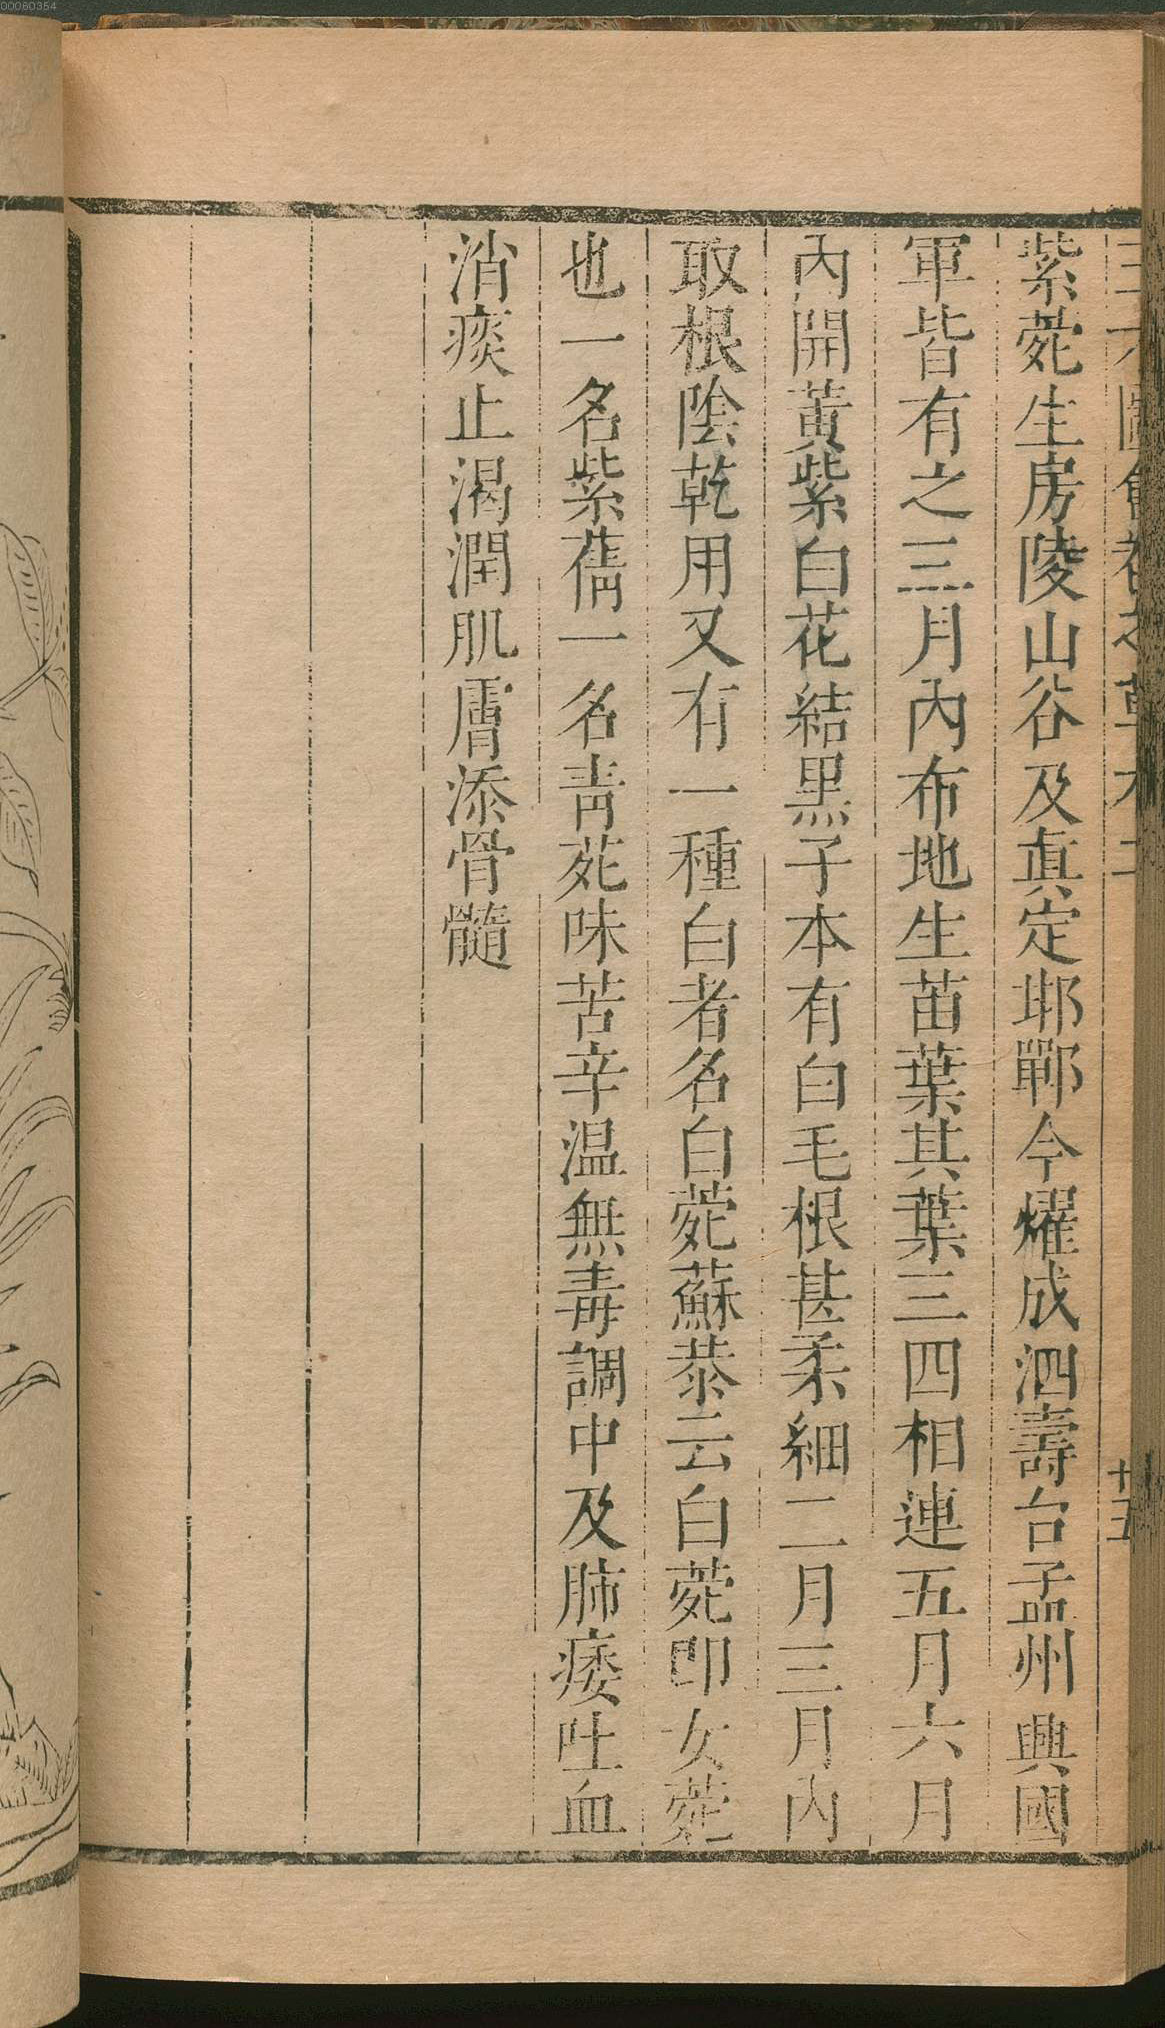 紫菀生房陵山谷及真定邯鄲今耀成泗壽台孟州興國
軍皆有之三月內布地生苗葉其葉三四相連五月六月
內開黃紫白花結黑子本有白毛根甚柔細二月三月內
取根陰乾用又有一種白者名白菀蘇恭云白菀即女菀
也一名紫蒨一名青菀味苦辛温無毒調中及肺痿吐血
消痰止渴潤肌膚添骨髓
十五
00060354